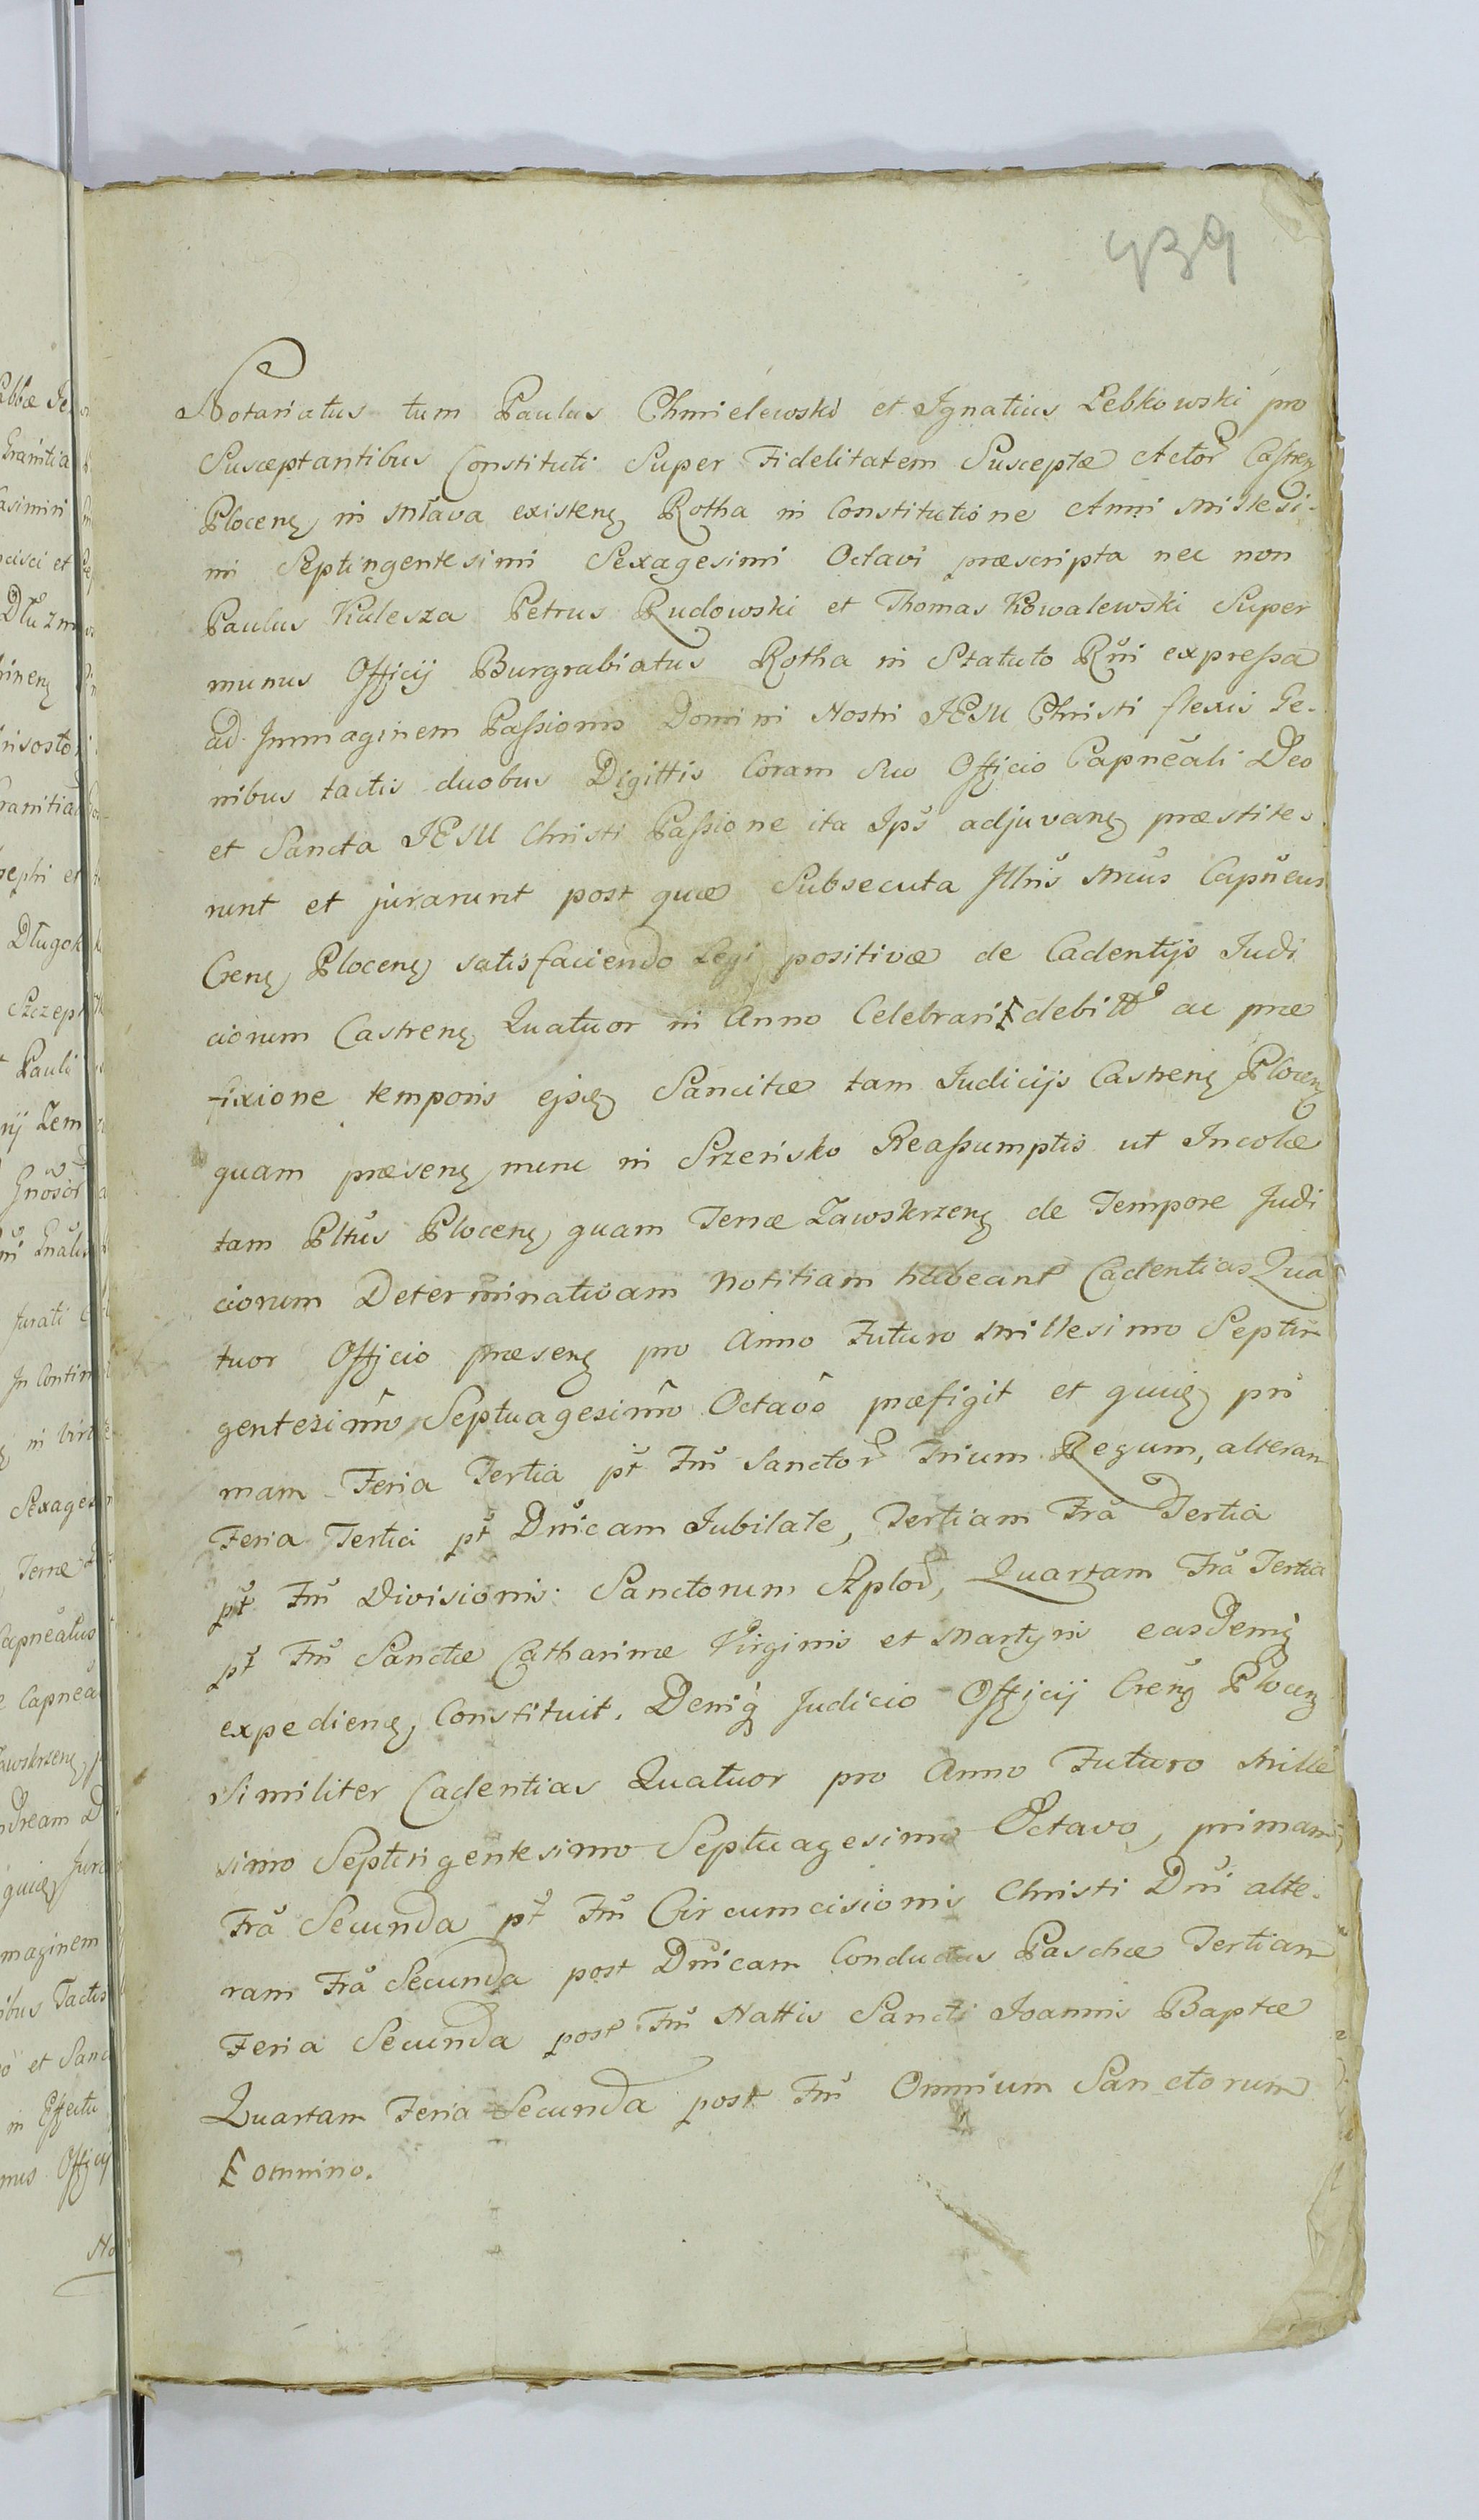 439
Notariatus tum Paulus Chmielewski et Ignatius Łebkowski pro
Susceptantibus Constituti Super Fidelitatem Susceptæ Actor Castren
Plocen in Mława existen Rotha in Constitutione Anni Millesi-
mi Septingentesimi Sexagesimi Octavi præscripta nec non
Paulus Kulesza Petrus Rudowski et Thomas Kowalewski Super
munus Officij Burgrabiatus Rotha in Statuto Rñi expressa
ad Immaginem Passionis Domini Nostri JESU Christi flexis Ge-
nibus tactis duobus Digittis Coram Suo Officio Capneali Deo
et Sancta JESU Christi Passione ita Ips adjuvan præstite-
runt et jurarunt post quæ Subsecuta Illris Mcus Capneus
Cren Plocen satisfaciendo Legi positivæ de Cadentijs Judi
ciorum Castren Quatuor in Anno Celebrari debitt ac præ
fixione temporis ejsq Sancitæ tam Judicijs Castren Plocen
quam præsen nunc in Srzeńsko Reassumptis ut Incolæ
tam Pltus Plocen quam Terræ Zawskrzen de Tempore Judi
ciorum Determinativam Notitiam habeant Cadentias Qua
tuor Officio præsen pro Anno Futuro Millesimo Septin
gentesimo Septuagesimo Octavo præfigit et quidę pri
mam Feria Tertia pt Fm Sanctor Trium Regum, alteram
Feria Tertia pt Dnicam Jubilate, Tertiam Fra Tertia
pt Fm Divisionis Sanctorum Aplor, Quartam Fra Tertia
pt Fm Sanctæ Catharinæ Virginis et Martyris easdemq
expedien, Constituit. Deniq Judicio Officij Cren Plocen
Similiter Cadentias Quatuor pro Anno Futuro Mille
simo Septingentesimo Septuagesimo Octavo, primam
Fra Secunda pt Fm Circumcisionis Christi Dni alte-
ram Fra Secunda post Dnicam Conductus Paschæ Tertiam
Feria Secunda post Fm Nattis Sancti Joannis Baptæ
Quartam Feria Secunda post Fm Omnium Sanctorum
omnino.